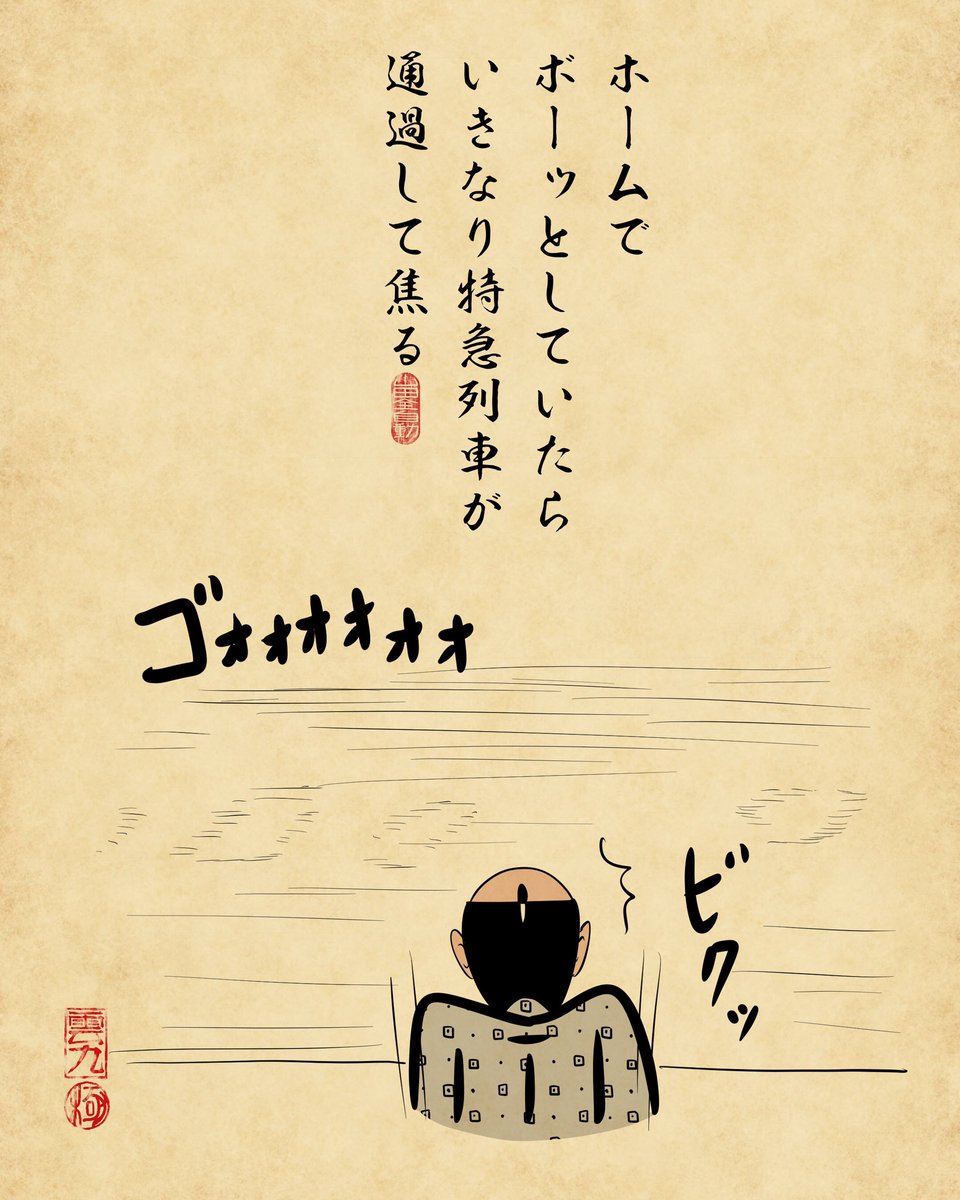 ホームで
ボーッとしていたら
いきなり特急列車が
通過して焦る
ゴォォォォォォ
ビクッ
雲九
極